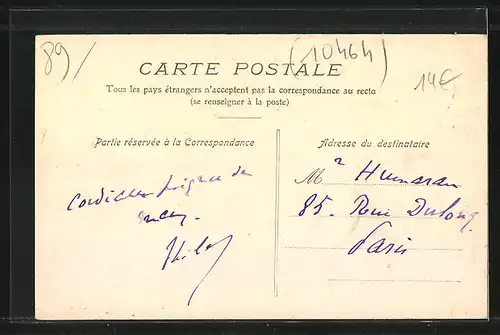 89/
(10464)
14€
CARTE POSTALE
Tous les pays étrangers n'acceptent pas la correspondance au recto
(se renseigner à la poste)
Partie réservée à la Correspondance
Adresse du destinataire
Mr Humaran
85. Rue Dulong
Paris